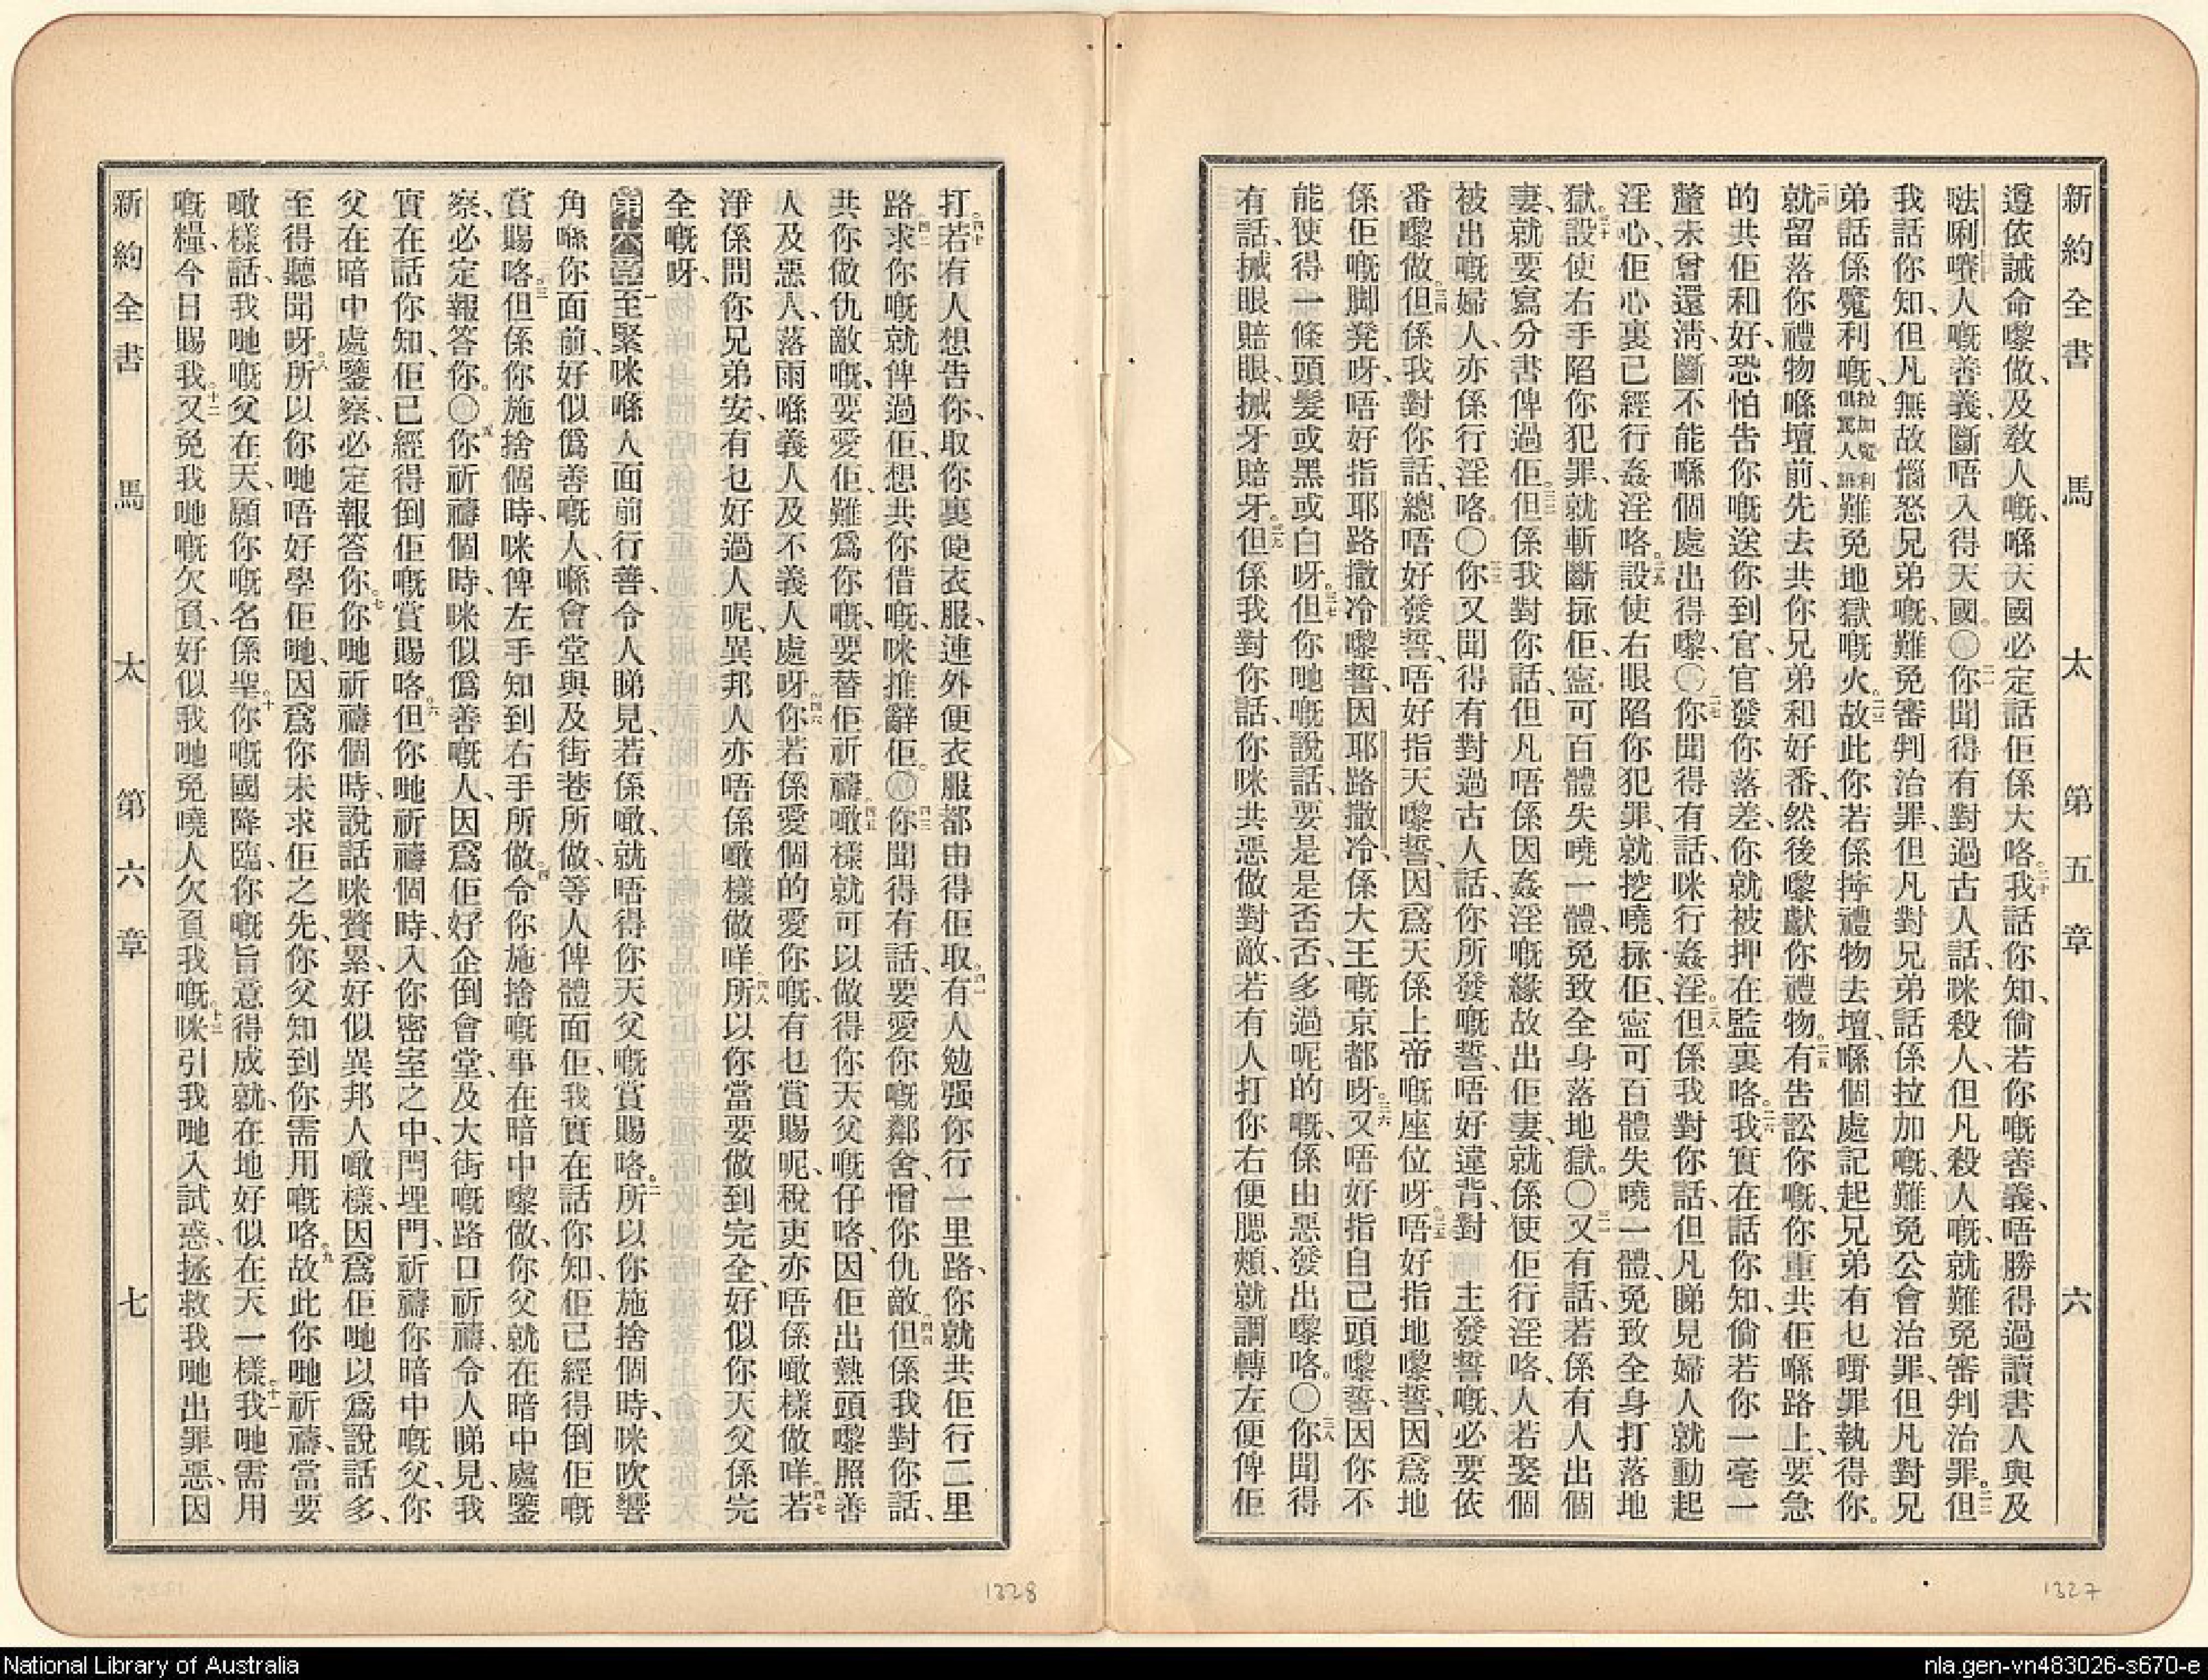 新約全書 馬 太 第五章 六
遵依誡命嚟做、及教人嘅、喺天國必定話佢係大咯。二十我話你知、倘若你嘅善義、唔勝得過讀書人與及
𠵽唎㘔人嘅善義、斷唔入得天國。○二一你聞得有對過古人話、咪殺人、但凡殺人嘅、就難免審判治罪。二二但
我話你知、但凡無故惱怒兄弟嘅、難免審判治罪、但凡對兄弟話係拉加嘅、難免公會治罪、但凡對兄
弟話係魔利嘅、拉加魔利俱罵人語難免地獄嘅火。二三故此你若係㨃禮物去壇、喺個處記起兄弟有乜嘢罪執得你。
二四就留落你禮物喺壇前、先去共你兄弟和好番、然後嚟獻你禮物。二五有告訟你嘅、你重共佢喺路上、要急
的共佢和好、恐怕告你嘅送你到官、官發你落差、你就被押在監裏咯。二六我實在話你知、倘若你一毫一
釐未曾還淸、斷不能喺個處出得嚟、○二七你聞得有話、咪行姦淫。二八但係我對你話、但凡睇見婦人就動起
淫心、佢心裏已經行姦淫咯。二九設使右眼陷你犯罪、就挖曉㧒佢、寍可百體失曉一體、免致全身打落地
獄。三十設使右手陷你犯罪、就斬斷㧒佢、寍可百體失曉一體、免致全身落地獄。○三一又有話、若係有人出個
妻、就要寫分書俾過佢。三二但係我對你話、但凡唔係因姦淫嘅緣故出佢妻、就係使佢行淫咯、人若娶個
被出嘅婦人、亦係行淫咯。○三三你又聞得有對過古人話、你所發嘅誓、唔好違背、對 主發誓嘅、必要依
番嚟做。三四但係我對你話、總唔好發誓、唔好指天嚟誓、因爲天係上帝嘅座位呀。三五唔好指地嚟誓、因爲地
係佢嘅脚凳呀、唔好指耶路撒冷嚟誓、因耶路撒冷、係大王嘅京都呀。三六又唔好指自己頭嚟誓、因你不
能使得一條頭髮或黑或白呀。三七但你哋嘅說話、要是是否否、多過呢的嘅、係由惡發出嚟咯。○三八你聞得
有話、揻眼賠眼、揻牙賠牙。三九但係我對你話、你咪共惡做對敵、若有人打你右便腮頰、就調轉左便俾佢
打。四十若有人想告你、取你裏便衣服、連外便衣服都由得佢取。四一有人勉强你行一里路、你就共佢行二里
路。四二求你嘅就俾過佢、想共你借嘅、咪推辭佢。○四三你聞得有話、要愛你嘅鄰舍、憎你仇敵。四四但係我對你話、
共你做仇敵嘅、要愛佢、難爲你嘅、要替佢祈禱。四五噉樣就可以做得你天父嘅仔咯、因佢出熱頭嚟照善
人及惡人、落雨喺義人及不義人處呀。四六你若係愛個的愛你嘅、有乜賞賜呢、稅吏亦唔係噉樣做咩。四七若
淨係問你兄弟安、有乜好過人呢、異邦人亦唔係噉樣做咩。四八所以你當要做到完全、好似你天父係完
全嘅呀、
第六章一至緊咪喺人面前行善、令人睇見、若係噉、就唔得你天父嘅賞賜咯。二所以你施捨個時、咪吹響
角喺你面前、好似僞善嘅人、喺會堂與及街巷所做、等人俾體面佢、我實在話你知、佢已經得倒佢嘅
賞賜咯。三但係你施捨個時、咪俾左手知到右手所做。四令你施捨嘅事在暗中嚟做、你父就在暗中處鑒
察、必定報答你。○五你祈禱個時、咪似僞善嘅人、因爲佢好企倒會堂、及大街嘅路口祈禱、令人睇見、我
實在話你知、佢已經得倒佢嘅賞賜咯。六但你哋祈禱個時、入你密室之中、閂埋門、祈禱你暗中嘅父、你
父在暗中處鑒察、必定報答你。七你哋祈禱個時、說話咪贅累、好似異邦人噉樣、因爲佢哋以爲說話多、
至得聽聞呀。八所以你哋唔好學佢哋、因爲你未求佢之先、你父知到你需用嘅咯。九故此你哋祈禱、當要
噉樣話、我哋嘅父在天、願你嘅名係聖。十你嘅國降臨、你嘅旨意得成就、在地好似在天一樣。十一我哋需用
嘅糧、今日賜我。十二又免我哋嘅欠負、好似我哋免曉人欠負我嘅。十三咪引我哋入試惑、拯救我哋出罪惡、因
新約全書 馬 太 第六章 七
1328
1327
National Library of Australia
nla.gen-vn483026-s670-e